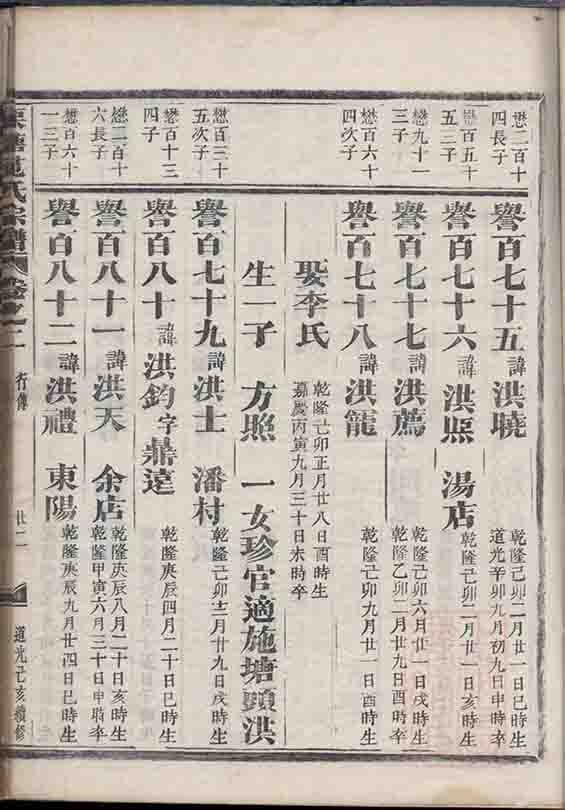 懋二百十
四長子
譽百七十五 諱洪曉
乾隆己卯二月廿一日巳時生
道光辛卯九月初九日申時卒
懋百五十
五二子
譽百七十六 諱洪煕 湯店
乾隆己卯二月廿一日亥時生
懋九十一
三子
譽百七十七 諱洪薦
乾隆己卯六月廿一日戌時生
乾隆乙卯二月廿九日酉時卒
懋百六十
四次子
譽百七十八 諱洪寵
乾隆己卯九月廿一日酉時生
娶李氏
乾隆己卯正月廿八日酉時生
嘉慶丙寅九月三十日未時卒
生一子 方照 一女珍官適施塘頭洪
懋百三十
五次子
譽百七十九 諱洪士 潘村
乾隆己卯十二月廿九日戌時生
懋百十三
四子
譽百八十 諱洪鈞字鼎遠
乾隆庚辰四月二十日巳時生
懋二百十
六長子
譽百八十一 諱洪天 余店
乾隆庚辰八月二十日亥時生
乾隆甲寅六月三十日申時卒
懋百六十
一三子
譽百八十二 諱洪禮 東陽
乾隆庚辰九月廿四日巳時生
范氏宗譜
行傳
廿二
道光己亥續修